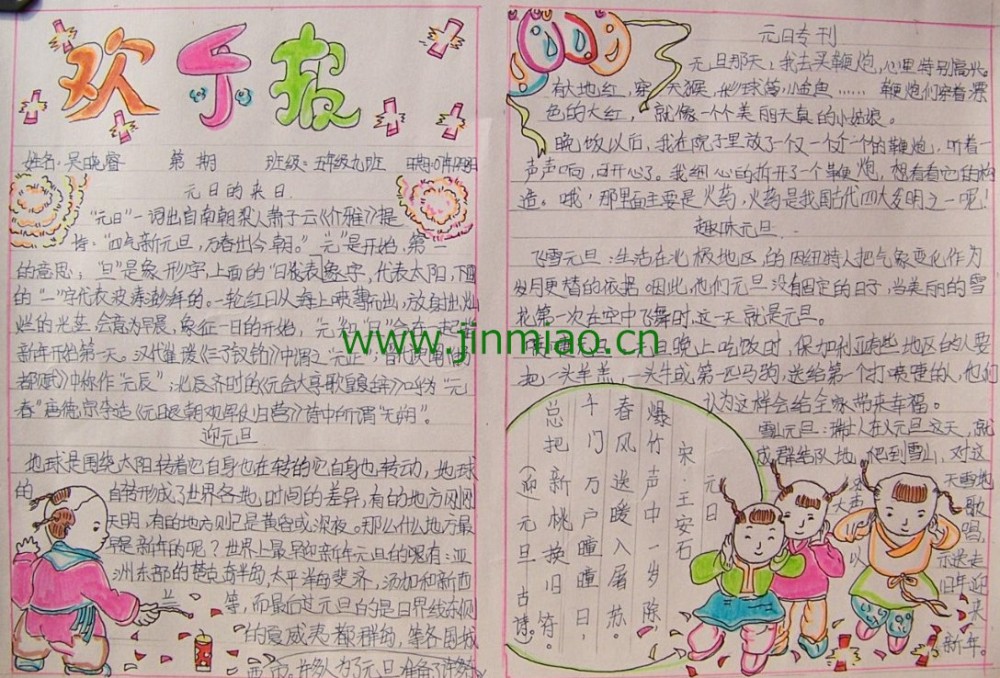 欢乐报
姓名:吴晓睿 第 期 班级:五年级九班
元旦的来日
"元旦"一词出自南朝梁人萧子云《介雅》提
诗,"四气新元旦,万春出今朝。""元"是开始,第一
的意思;"旦"是象形字,上面的"日"代表象字,代表太阳,下面
的"一"字代表波涛澎湃的。一轮红日从海上喷薄而出,放射出灿
烂的光芒
会意为早晨,象征一日的开始,
新年开始第一天。汉代崔瑗《三子钗铭》中谓之"元正";
中称作"元辰";北辰齐时的《元会大享歌皇夏辞》呼为"元
春"唐德宗李适《元日退朝观军仗归营》诗中所谓"元朔"。
迎元旦
地球是围绕太阳转着它自身也在转的它自身也转动,地球
的自转形成了世界各地,时间的差异,有的地方刚刚
天明,有的地方则已是黄昏或深夜。那么什么地方最
早是新年的呢?世界上最早迎新年元旦的嘎有:亚
洲东部的楚克奇半岛,太平洋的斐济,汤加和新西
等,而最后过元旦的是日界线东侧
的夏威夷都群岛,等各国城
www.jinmiao.cn
元日专刊
元旦那天,我去买鞭炮,心里特别高兴。
有大地红,穿天猴,彩球等小金鱼……鞭炮们穿着漂
色的大红,就像一个个美丽天真的小姑娘。
晚饭以后,我在院子里放了一仅一个个的鞭炮,听着一
声声响,开开心了。我细心的拆开了个鞭炮,想看看它的构
造。哦!那里面主要是火药,火药是我国古代四大发明之一呢!
趣味元旦
飞雪元旦:生活在北极地区的因纽特人把气象变化作为
岁月更替的依据 因此,他们元旦没有固定的日子,当美丽的雪
花第一次在空中飞舞时,这一天就是元旦。
日晚上吃饭时,保加利亚有些地区的人要
把一头羊羔,一头牛或第一匹马驹,送给第一个打喷嚏的人,他们
认为这样会给全家带来幸福。
雪山元旦:瑞士人在元旦这天,就
成群结队地,爬到雪山,对这
天雪地
大声
歌
唱,
以
示送走
旧年迎
来
新年。
元日
宋·王安石
爆竹声中一岁除
春风送暖入屠苏。
千门万户曈曈日,
总把新桃换旧符。
(迎元旦古诗。